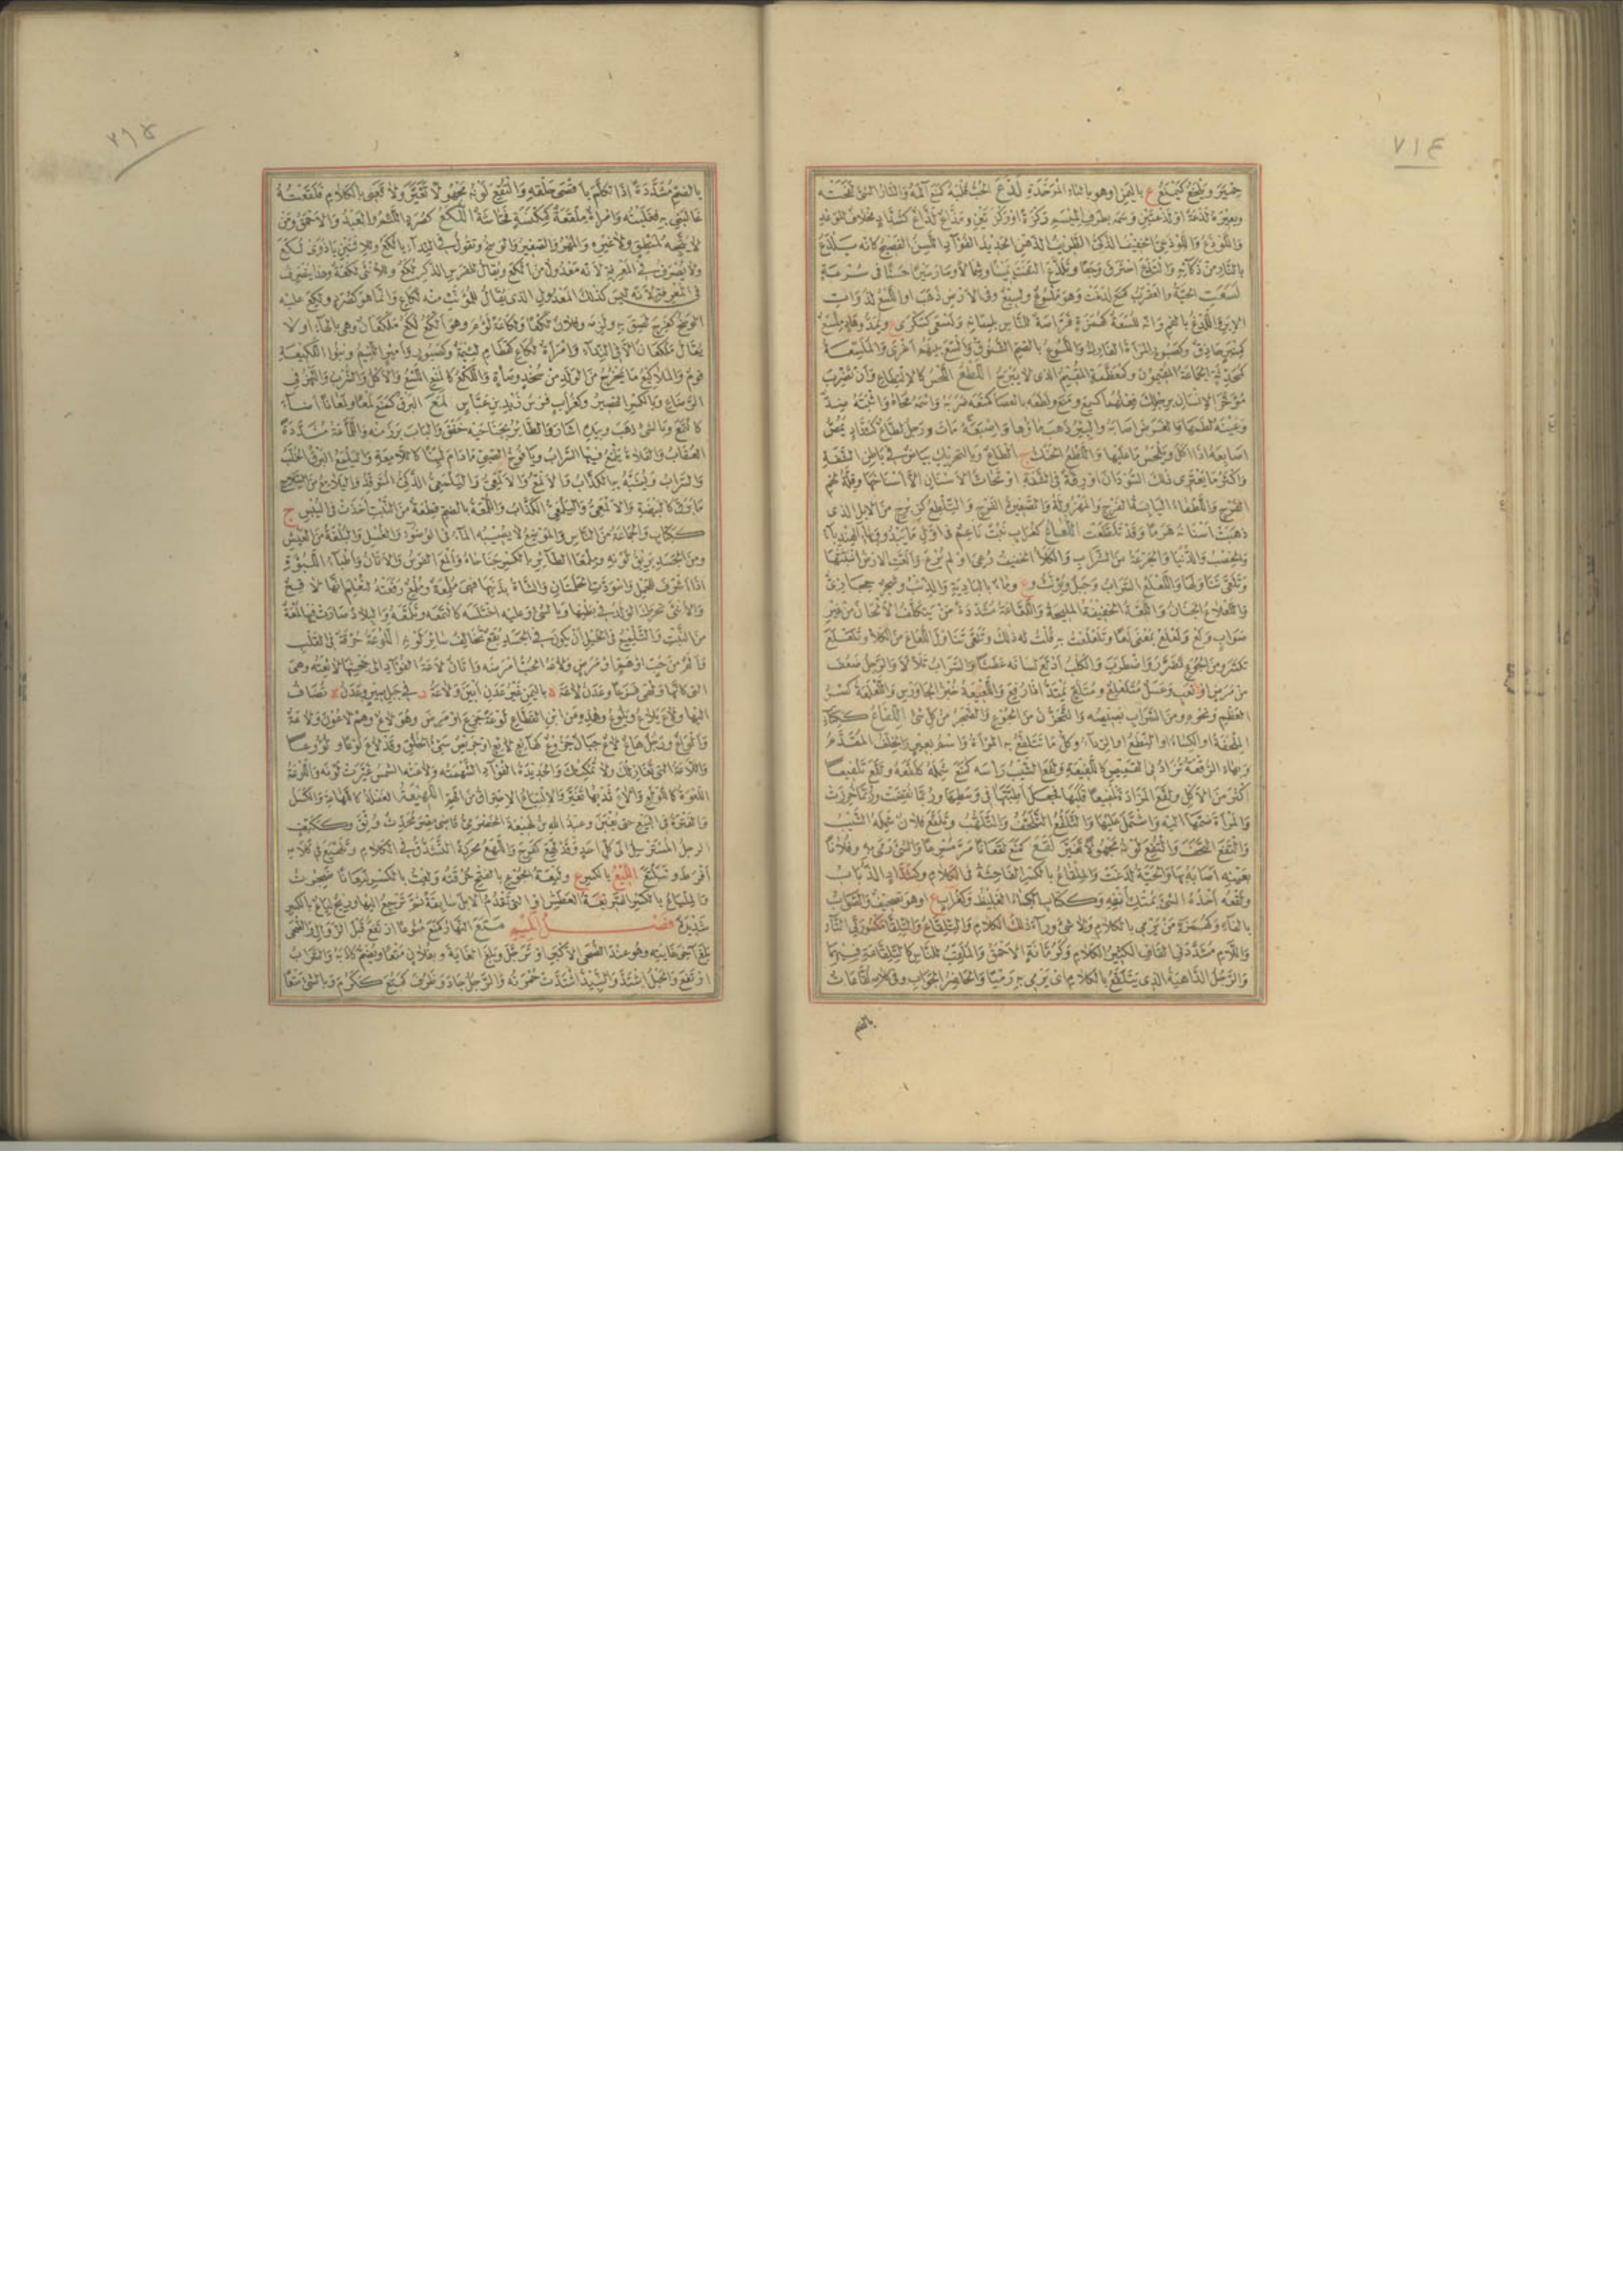 ٧١٤
حِمْيَرَ وَيَلْخَعُ كَيَمْنَعُ ع باليمن او هو بالباء الموحدة لَذَعَ الحبّ قلبه كمنع آلمه والنار الشئ لفحته
وبعيره لذعة او لذعتين وسمه بطرف الميسم ركزة او ركزتين
واللوذع واللوذعي الخفيف الذكي الظريف الذهن الحديد الفؤاد اللسن الفصيح كانه يلذع
بالنار من ذكائه والتذع احترق وجعا وتلذع التفت يمينا وشمالا وسار سيرا حسنا في سرعة
لسعت الحية والعقرب كمنع لدغت وهو ملسوع ولسيع وفي الارض ذهب او اللسع لذوات
الابر واللدغ بالفم وانه للسعة كهمزة قراصة للناس بلسانه ولسعى كسكرى ع ويمد وهاد ملسع
كمنبر حاذق وكصبور المرأة الفارك واللسوع بالضم الشقوق والسع بينهم اغرى والملسعة
كمحدثة الجماعة المقيمون وكمعظمة المقيم الذي لا يبرح اللطع اللحس كالالتطاع وان تضرب
مؤخر الانسان برجلك فعلهما كسمع ومنع ولطعه بالعصا كمنعه ضربه واسمه محاه واثبته ضد
وعينه لطمها والغرض اصابه والبئر ذهب ماؤها واصبعه مات ورجل لطاع كشداد يمص
اصابعه اذا اكل ويلحس ما عليها والملطع الحنك ج الطاع وبالتحريك بياض في باطن الشفة
واكثر ما يعترى ذلك السودان او رقة في الشفة او تحات الاسنان الا اسناخها وقلة لحم
الفرج واللطعاء اليابسة الفرج والمهزولة والصغيرة الفرج واللطع كزبرج من الابل الذي
ذهبت اسنانه هرما وقد تلطعت اللعاع كغراب نبت ناعم في اول ما يبدو وبهاء الهندباء
والخصب والدنيا والجرعة من الشراب والكلأ الخفيف رعى او لم يرع والعت الارض انبتتها
وتلعى تناولها واللعلع السراب وجبل ويؤنث وع وماء بالبادية والذئب وشجر حجازي
واللعلاع الجبان واللعة الخفيفة المليحة واللعاعة مشددة من يتكلف الالحان من غير
صواب ولع ولعلع بمعنى لعا وتلعلعت به قلت له ذلك وتلعى تناول اللعاع من الكلأ وتلعلع
تكسر ومن الجوع تضور واضطرب والكلب ادلع لسانه عطشا والسراب تلألأ والرجل ضعف
من مرض او تعب وعسل متلعلع ومتلع يمتد اذا رفع واللعيعة خبز الجاورس واللعلعة كسر
العظم ونحوه ومن السراب بصيصه والتحزن من الجوع والضجر من كل شئ اللفاع ككتاب
الملحفة او الكساء او النطع او الرداء وكل ما تتلفع به المرأة واسم بعير والخلف المقدم
وبهاء الرقعة تزاد في القميص كاللفيعة ولفع الشيب رأسه كمنع شمله كلفعه ولفع تلفيعا
اكثر من الاكل ولفع المزادة تلفيعا قلبها فجعل اطبتها في وسطها وربما نقضت وربما خرزت
والمرأة ضمها اليه واشتمل عليها والتلفع التلحف والتلهب وتلفع فلان شمله الشيب
والتفع التحف والتفع لونه مجهولا تغير لقع كمنع لقعانا مر مسرعا والشئ رمى به وفلانا
بعينه اصابه بها والحية لدغت والملقاع بالكسر الفاحشة في الكلام وكشداد الذباب
ولقعه اخذه الشئ بمتك انفه وككتاب الكساء الغليظ وكغراب ع او هو تصحيف والصواب
بالفاء وكهمزة من يرمي بالكلام ولا شئ وراء ذلك الكلام والتلقاع والتلقاعة مكسورتي التاء
واللام مشددتي القاف الكثير الكلام وكرمانة الاحمق والملقب للناس كالتلقاعة فيهما
والرجل الداهية الذي يتلقع بالكلام اي يرمي به رميا والحاضر الجواب وفي كلامه لقاعات
بالضم
بالضم مشددة اذا تكلم باقصى حلقه والتقع لونه مجهولا تغير ولاقعني بالكلام فلقعته
غالبني به فغلبته وامرأة ملقعة كمكنسة فحاشة اللكع كصرد اللئيم والعبد والاحمق ومن
لا يتجه لمنطق ولا غيره والمهر والصغير والوسخ وتقول في النداء يا لكع وللاثنين يا ذوي لكع
ولا يصرف في المعرفة لانه معدول من الكع ويقال للفرس الذكر لكع وللانثى لكعة وهذا ينصرف
في المعرفة لانه ليس كذلك المعدول الذي يقال للمؤنث منه لكاع وانما هو كصرد ولكع عليه
الوسخ كفرح لصق به ولزمه وفلان لكعا ولكاعة لؤم وهو الكع لكع ملكعان وهي بالهاء او لا
يقال ملكعان الا في النداء وامرأة لكاع كقطام لئيمة وكصبور وامير اللئيم وبنو اللكيعة
قوم والملاكيع ما يخرج من الولد من سخد وصاءة واللكع كالمنع اللسع والاكل والشرب والنهز في
الرضاع وبالكسر القصير وكغراب فرس زيد بن عباس لمع البرق كمنع لمعا ولمعانا اضاء
كالتمع وبالشئ ذهب وبيده اشار والطائر بجناحيه خفق والباب برز منه واللماعة مشددة
العقاب والفلاة يلمع فيها السراب ويافوخ الصبي ما دام لينا كاللامعة واليلمع البرق الخلب
والسراب ويشبه به الكذاب والالمع والالمعي واليلمعي الذكي المتوقد واليلامع من السلاح
ما برق كالبيضة والالمعي واليلمعي الكذاب واللمعة بالضم قطعة من النبت اخذت في اليبس ج
ككتاب والجماعة من الناس والموضع لا يصيبه الماء في الوضوء والغسل والبلغة من العيش
ومن الجسد بريق لونه وملمعا الطائر بالكسر جناحاه والمع الفرس والاتان واطباء اللبؤة
اذا اشرف للحمل واسودت الحلمتان والشاة بذنبها فهي ملمعة وملمع رفعته ليعلم انها لاقح
والانثى تحرك الولد في بطنها وبالشئ وعليه اختلسه كالتمعه وتلمعه والبلاد صارت فيها لمعة
من النبت والتلميع في الخيل ان يكون في الجسد بقع تخالف سائر لونه اللوعة حرقة في القلب
والم من حب او هم او مرض ولاعه الحب امرضه واتان لاعة الفؤاد الى جحشها لائعته وهي
التي كانها ولهى فزعا وعدن لاعة ة باليمن غير عدن ابين ولاعة د في جبل صبر وعدن تضاف
اليها ولاع يلاع ويلوع وهذه من ابن القطاع لوعة جزع او مرض وهو لاع وهم لاعون ولاعة
والواع ورجل هاع لاع جبان جزوع كهائع لائع او حريص سيئ الخلق وقد لاع لوعا ولووعا
واللاعة التي تغازلك ولا تمكنك والحديدة الفؤاد الشهمة ولاعته الشمس غيرت لونه واللوعة
اللعوة كاللولع والاع ثديها تغير والالتياع الاحتراق من الهم اللهيعة الغفلة كاللهاعة والكسل
والفترة في البيع حتى يغبن وعبد الله بن لهيعة الحضرمي قاضي مصر محدث وثق وككتف
الرجل المسترسل الى كل احد وقد لهع كفرح واللهع محركة التشدق في الكلام وتلهيع في كلامه
افرط وتبلتع الليع بالكسر ع وليعة الجوع بالفتح حرقته ولعت بالكسر ليعانا ضجرت
والملياع بالكسر السريعة العطش او التي تقدم الابل سابقة ثم ترجع اليها وريح لياع بالكسر
شديدة فصل الميم متع النهار كمنع متوعا ارتفع قبل الزوال والضحى
بلغ آخر غايته وهو عند الضحى الاكبر او ترجل وبلغ الغاية وبفلان متعا ويضم كاذبه والسراب
ارتفع والحبل اشتد والنبيذ اشتدت حمرته والرجل جاد وظرف كمتع ككرم وبالشئ متعا